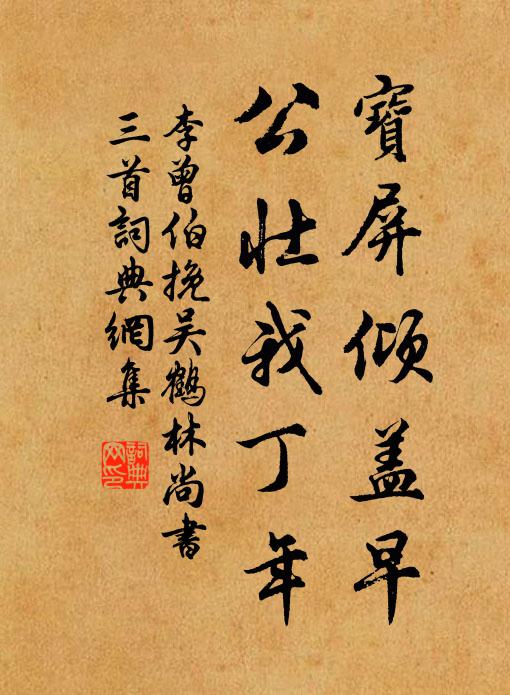 寶屏傾盖早
公壯我丁年
李曾伯挽吴鶴林尚書
三首詞典網集
詞典網印